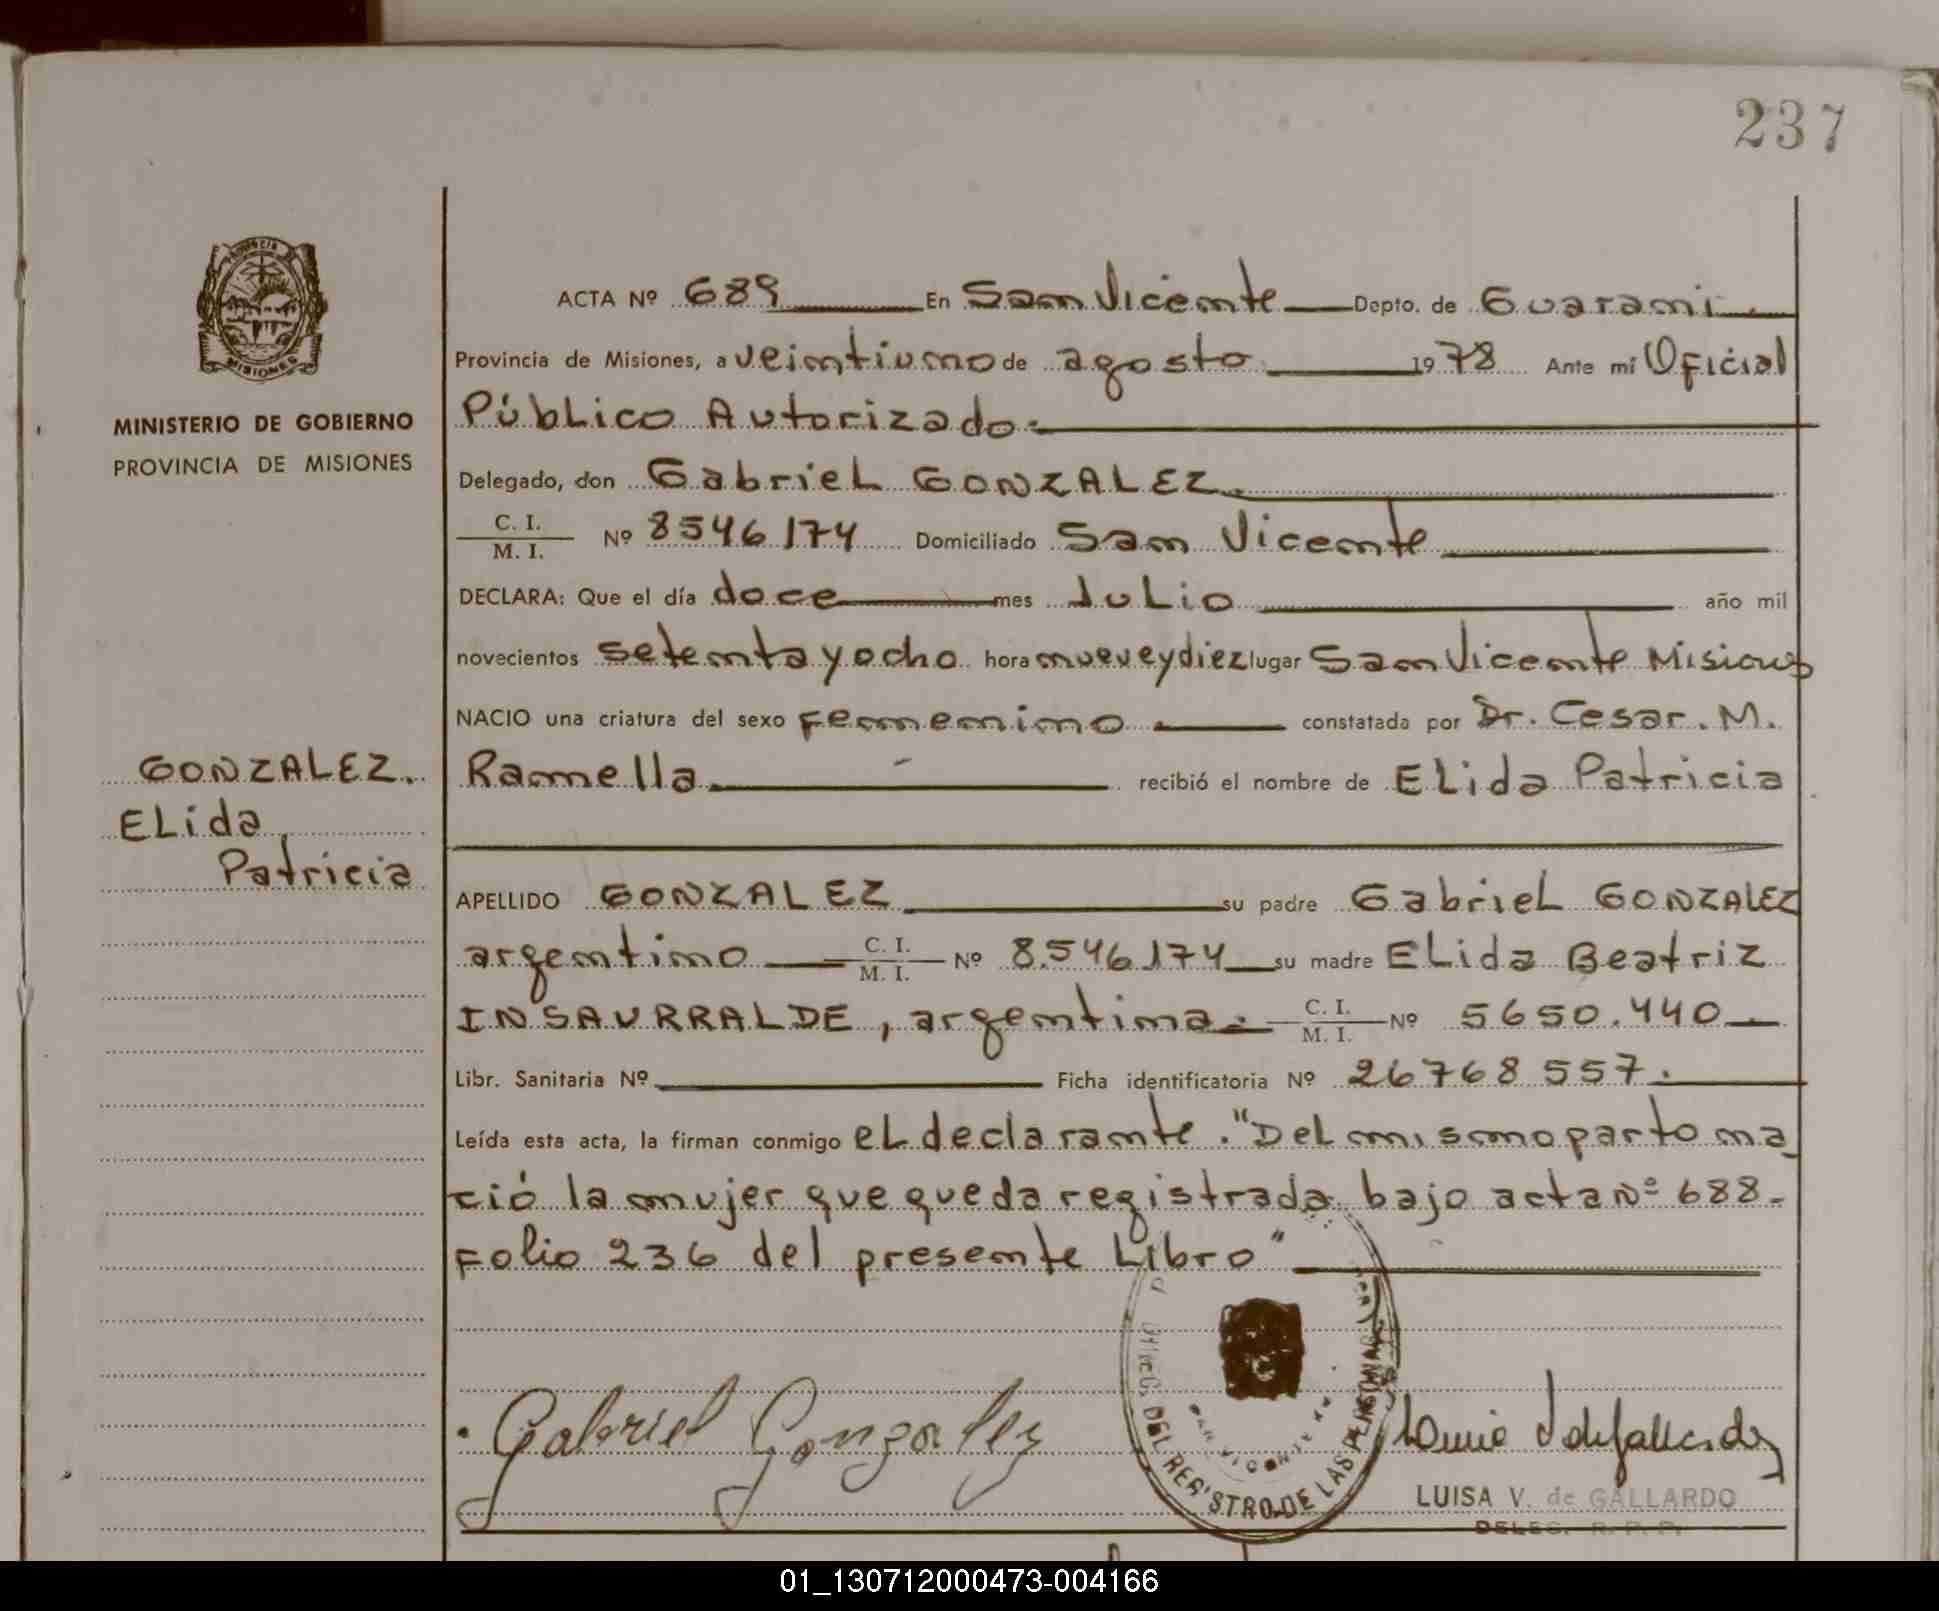 237
PROVINCIA DE
MISIONES
MINISTERIO DE GOBIERNO
PROVINCIA DE MISIONES
GONZALEZ.
ELida
Patricia
ACTA Nº 689 En San Vicente Depto. de Guarani
Provincia de Misiones, a veintiuno de agosto 1978 Ante mí Oficial
Público Autorizado.
Delegado, don Gabriel GONZALEZ.
C. I.
M. I. Nº 8546174 Domiciliado San Vicente
DECLARA: Que el día doce mes Julio año mil
novecientos setenta y ocho hora nueve y diez lugar San Vicente Misiones
NACIO una criatura del sexo femenino constatada por Dr. Cesar. M.
Ramella recibió el nombre de ELida Patricia
APELLIDO GONZALEZ su padre Gabriel GONZALEZ
argentino C. I.
M. I. Nº 8.546.174 su madre ELida Beatriz
INSAURRALDE, argentina. C. I.
M. I. Nº 5650.440
Libr. Sanitaria Nº Ficha identificatoria Nº 26768557.
Leída esta acta, la firman conmigo el declarante. "Del mismo parto na
ció la mujer que queda registrada bajo acta Nº 688-
Folio 236 del presente Libro"
Gabriel Gonzalez
DEL REGISTRO DE LAS PERSONAS
SAN VICENTE
LUISA V. de GALLARDO
DELEG. R. P. P.
01_130712000473-004166